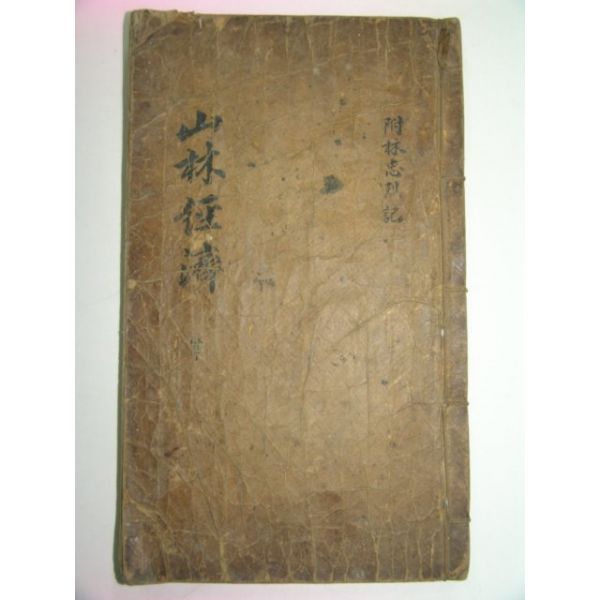 山林経濟
附林忠列記